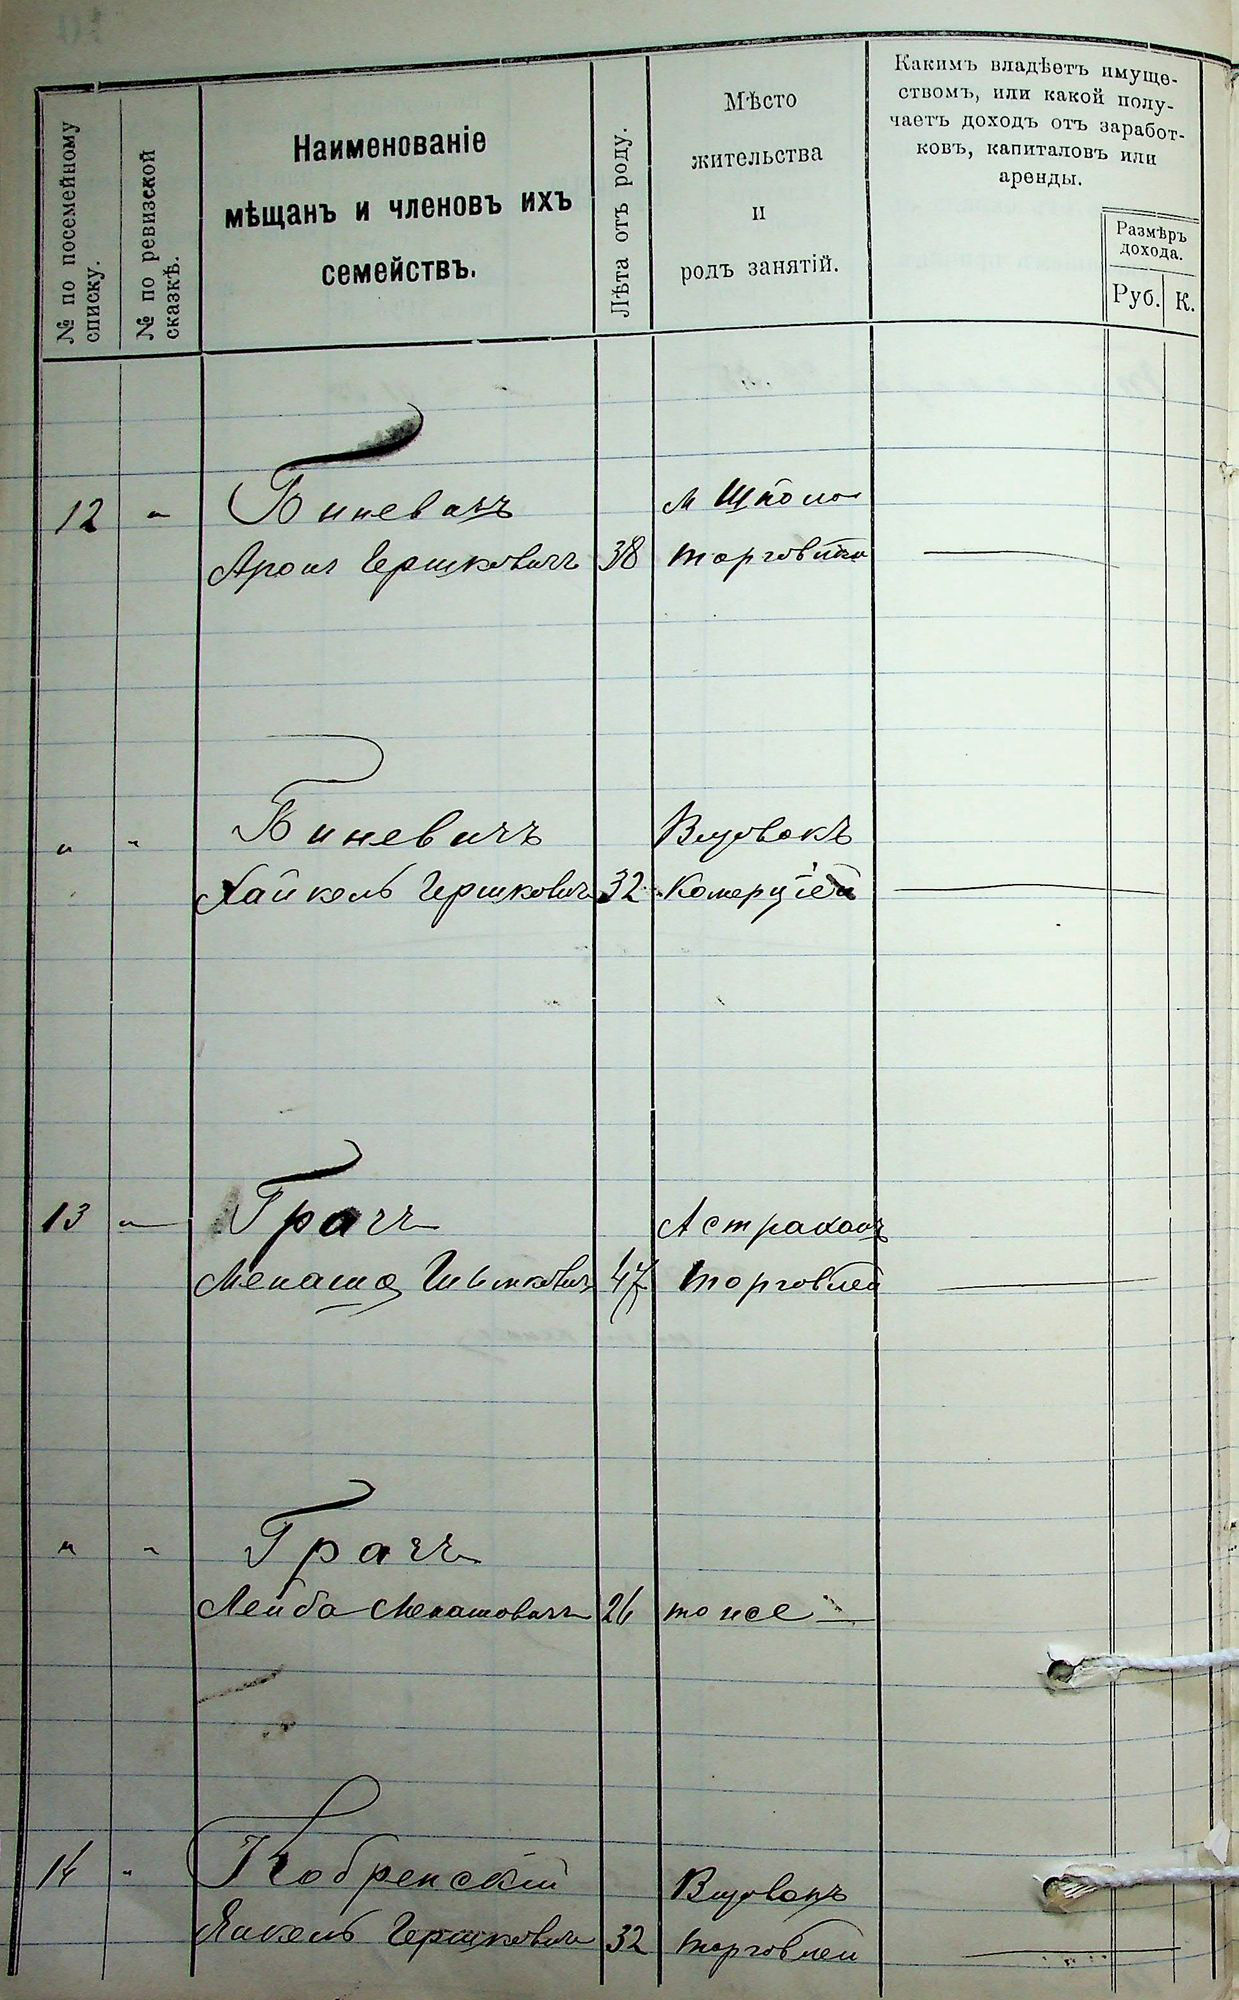 № по посемейному
списку.
№ по ревизской
сказкѣ.
Наименованіе
мѣщанъ и членовъ ихъ
семействъ.
Лѣта отъ роду.
Мѣсто
жительства
и
родъ занятій.
Какимъ владѣетъ имуще-
ствомъ, или какой полу-
чаетъ доходъ отъ заработ-
ковъ, капиталовъ или
аренды.
Размѣръ
дохода.
Руб. К.
12 " Биневичъ м Шпола
Аронъ Гершковичъ 38 торговлею
" " Биневичъ
Хайкель Гершковичъ 32 Комерціей
13 " Грачъ Астрахань
Менаша Шимковичъ 47 торговлей
" " Грачъ
Лейба Менашовичъ 26 тоже
14 " Кобренскій
Янкель Гершковичъ 32 торговлей